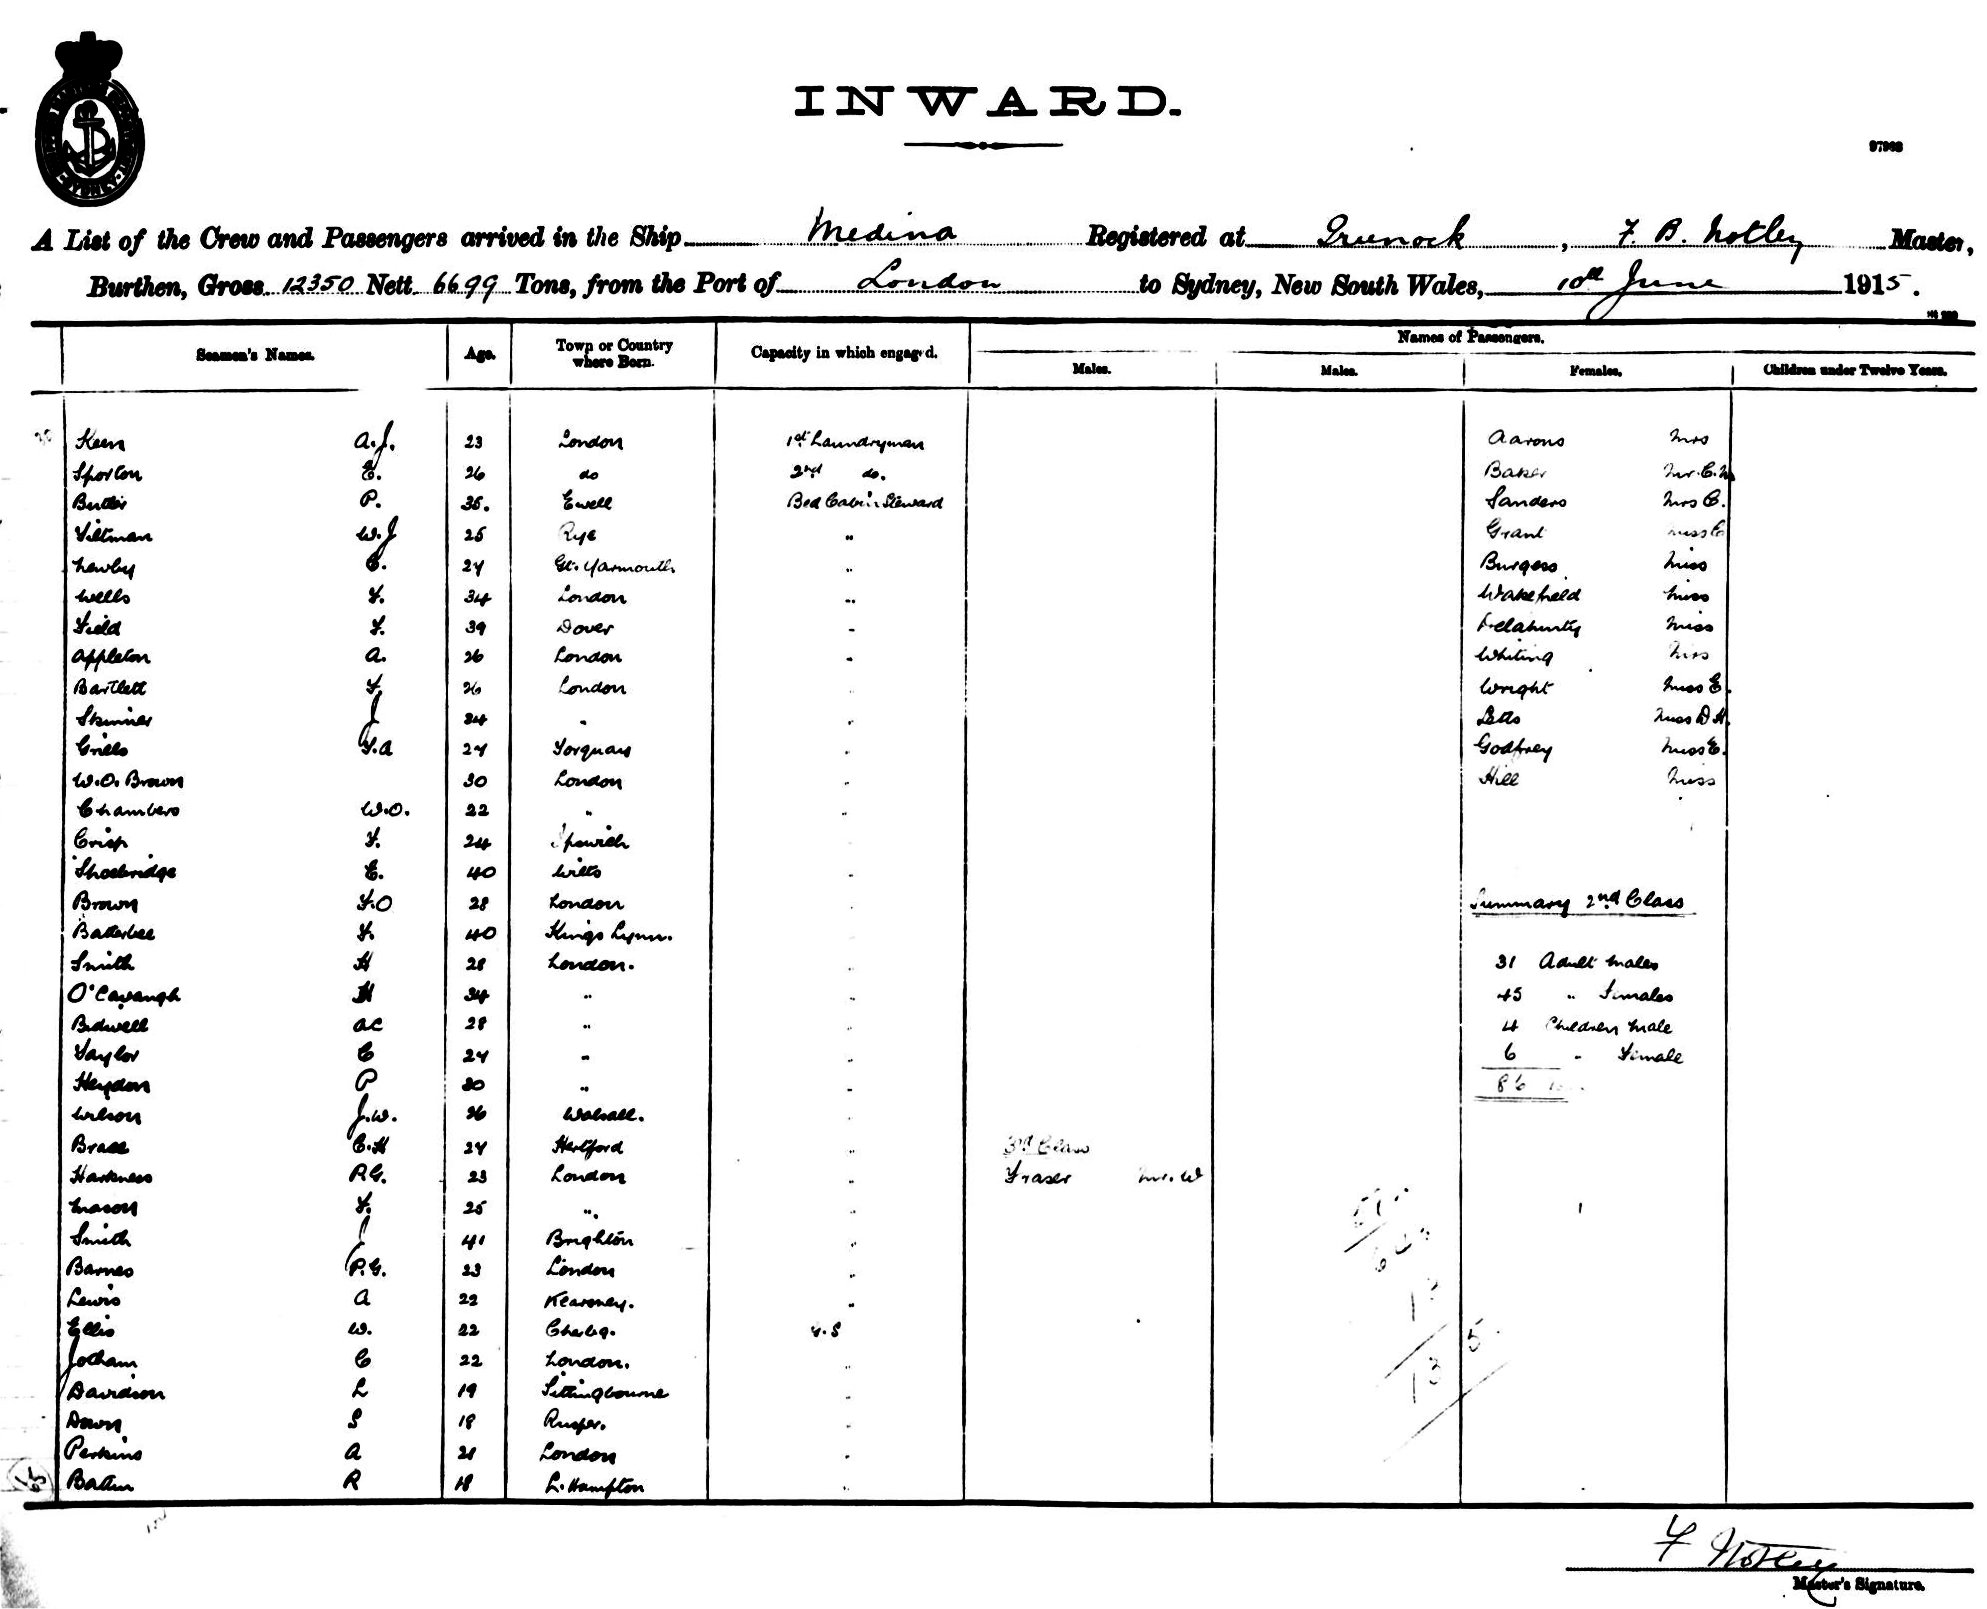 INWARD.
97963
A List of the Crew and Passengers arrived in the Ship Medina Registered at Greenock, F. B. Notley Master,
Burthen, Gross 12350 Nett 6699 Tons, from the Port of London to Sydney, New South Wales, 10th June 1915.
Seamen's Names. Age. Town or Country where Born. Capacity in which engag'd. Names of Passengers.
Males. Males. Females. Children under Twelve Years.
Keen A.J. 23 London 1st Laundryman Aarons Mrs
Sporton E. 26 do 2nd do. Baker
Butler P. 35. Ewell Bed Cabin Steward Sanders Mrs C.
Tiltman W.J 25 Rye " Grant Miss
Newby C. 24 Gt. Yarmouth " Burgess Miss
Wells F. 34 London " Wakefield Miss
Field F. 39 Dover " Delahunty Miss
Appleton A. 26 London " Whiting Mrs
Bartlett F. 26 London " Wright Miss E.
Skinner J 34 " " Letts Miss D H.
Grills F.A 24 Torquay " Godfrey Miss E.
W.O. Brown 30 London " Hill Miss
Chambers W.O. 22 " "
Crisp F. 24 Ipswich "
Shoebridge E. 40 Wilts "
Brown F.O 28 London " Summary 2nd Class
Batterbee F. 40 Kings Lynn. "
Smith H 28 London. " 31 Adult Males
O'Cavangh H 34 " " 45 " Females
Bidwell AC 28 " " 4 Children Male
Taylor C 24 " " 6 " Female
Heydon P 30 " " 86
Wilson J.W. 26 Walsall. "
Brace C.H 24 Hertford " 3rd Class
Harkness P.G. 23 London " Fraser Mr. W
Mason F. 25 " "
Smith J 41 Brighton "
Barnes P.G. 23 London "
Lewis A 22 Kearsney. "
Ellis W. 22 G.S
Jotham C 22 London. "
Davidson L 19 Sittingbourne "
Down S 18 Rusper. "
Perkins A 21 London "
Batten R 18 L. Hampton "
F Notley
Master's Signature.